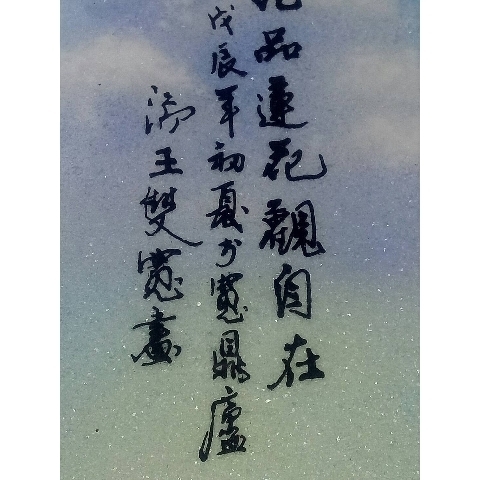 品蓮花觀自在
戊辰年初夏於寬鼎廬
王雙寬畫